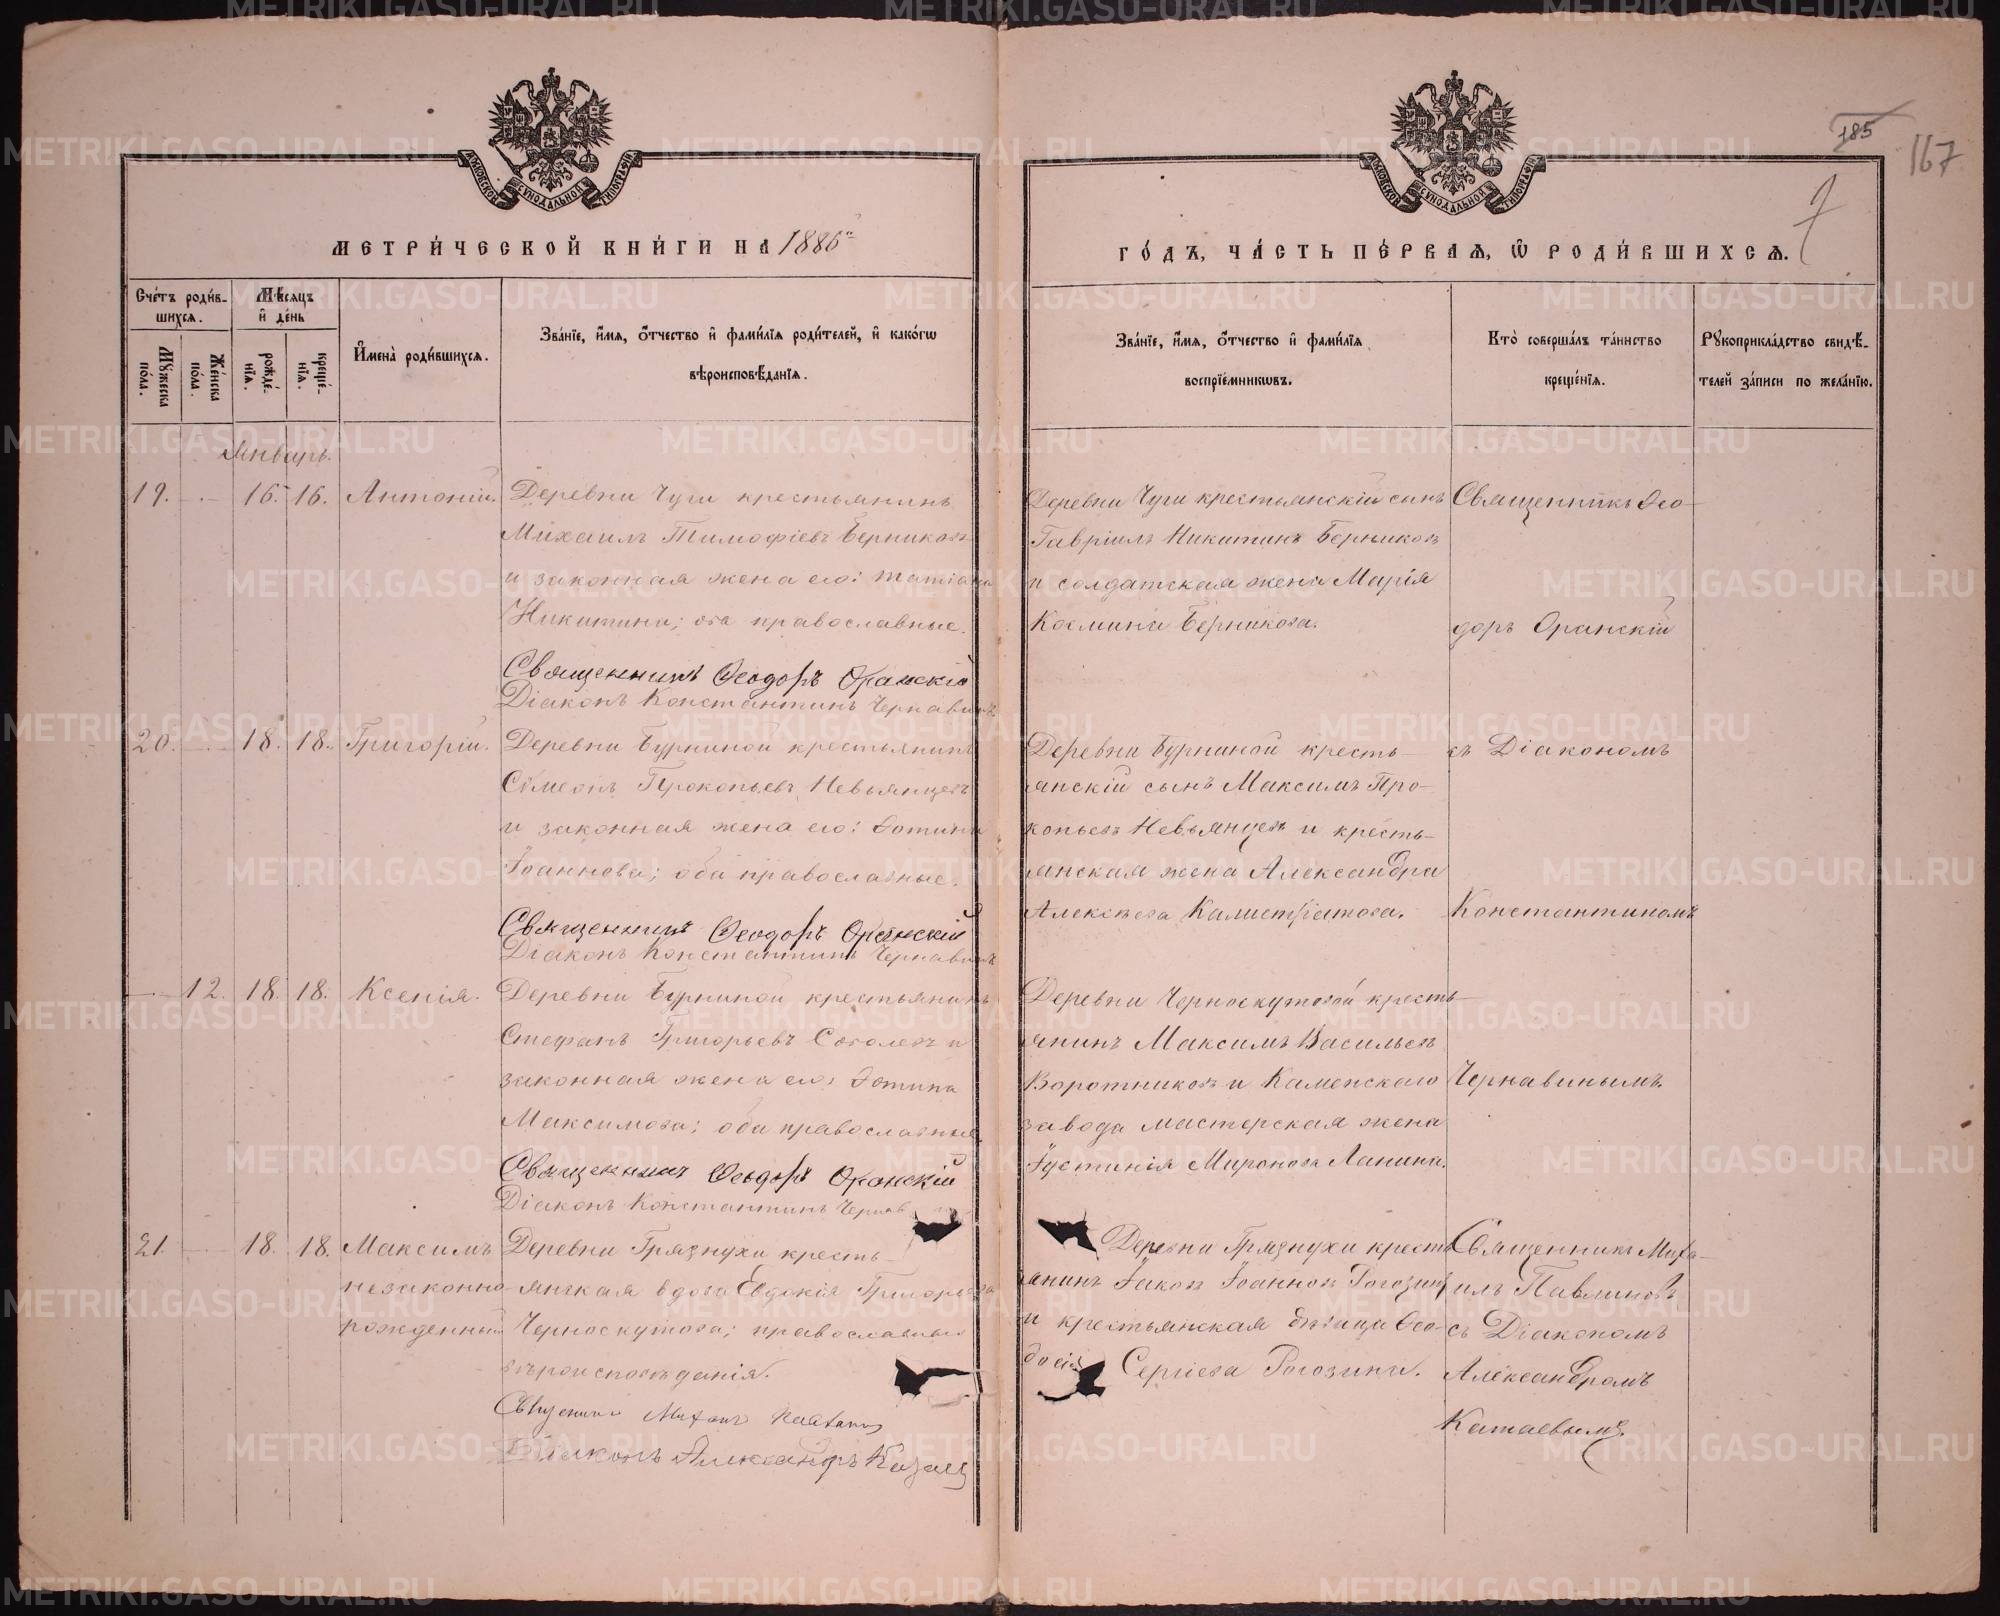 185
167
7
МОСКОВСКОЙ СУНОДАЛЬНОЙ ТИПОГРАФІИ
МОСКОВСКОЙ СУНОДАЛЬНОЙ ТИПОГРАФІИ
МЕТРИ́ЧЕСКОЙ КНИ́ГИ НА 1886й
ГО́ДЪ, ЧА́СТЬ ПЕ́РВАЯ, Ѡ РОДИ́ВШИХСЯ.
Счетъ роди́в-
шихся.
Мѣсяцъ
и де́нь
Мужеска
по́ла.
Же́нска
по́ла.
рожде́-
нїя.
креще́-
нїя.
Имена̀ роди́вшихся.
Зва́нїе, и́мя, о́тчество и фами́лїя роди́телей, и како́гѡ
вѣроисповѣ́данїя.
Зва́нїе, и́мя, о́тчество и фами́лїя
воспрїе́мникѡвъ.
Кто̀ соверша́лъ та́инство
креще́нїя.
Рукоприкла́дство свидѣ́-
телей за́писи по жела́нїю.
Январь.
19. 16. 16. Антоній.
Деревни Чуги крестьянинъ
Михаилъ Тимофіевъ Берниковъ
и законная жена его: Татіана
Никитина; оба православные.
Священникъ Ѳеодоръ Оранскій
Діаконъ Константинъ Чернавинъ
Деревни Чуги крестьянскій сынъ
Гавріилъ Никитинъ Берниковъ
и солдатская жена Марія
Космина Берникова.
Священникъ Ѳео-
доръ Оранскій
20. 18. 18. Григорій.
Деревни Бурниной крестьянинъ
Сѷмеонъ Прокопьевъ Невьянцевъ
и законная жена его: Фотина
Іоаннова; оба православные.
Священникъ Ѳеодоръ Оранскій
Діаконъ Константинъ Чернавинъ
Деревни Бурниной кресть-
янскій сынъ Максимъ Про-
копьевъ Невьянцевъ и кресть-
янская жена Александра
Алексѣева Калистратова.
съ Діакономъ
Константиномъ
12. 18. 18. Ксенія.
Деревни Бурниной крестьянинъ
Стефанъ Григорьевъ Соголевъ и
законная жена его: Фотина
Максимова; оба православные.
Священникъ Ѳеодоръ Оранскій
Діаконъ Константинъ
Деревни Черноскутовой кресть-
янинъ Максимъ Васильевъ
Воротниковъ и Каменскаго
завода мастерская жена
Іустинія Миронова Лапина.
Чернавинымъ.
21. 18. 18. Максимъ
незаконно
рожденный
Деревни Грязнухи кресть-
янская вдова Евдокія Григорьева
Черноскутова; православнаго
вѣроисповѣданія.
Священникъ Михаилъ Павлиновъ
Діаконъ Александръ Катаевъ
Деревни Грязнухи кресть
янинъ Іаковъ Іоанновъ Рогозинъ
и крестьянская дѣвица Ѳео-
досія Сергіева Рогозина.
Священникъ Миха-
илъ Павлиновъ
съ Діакономъ
Александромъ
Катаевымъ.